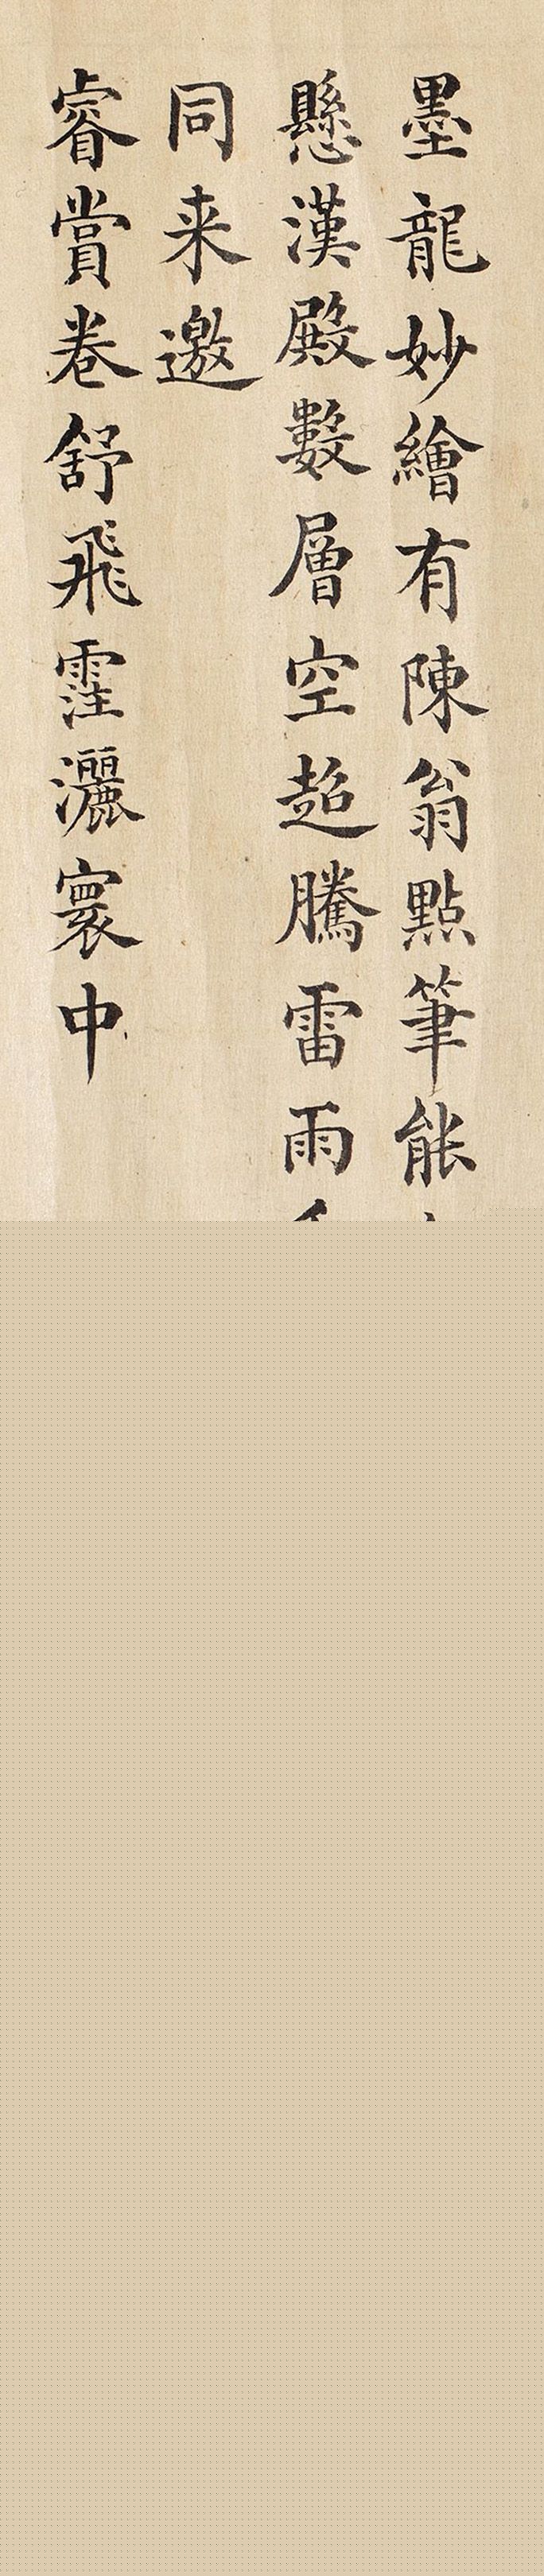 墨龍妙繪有陳翁點筆能
懸漢殿數層空超騰雷雨
同来邀
睿賞卷舒飛霔灑寰中